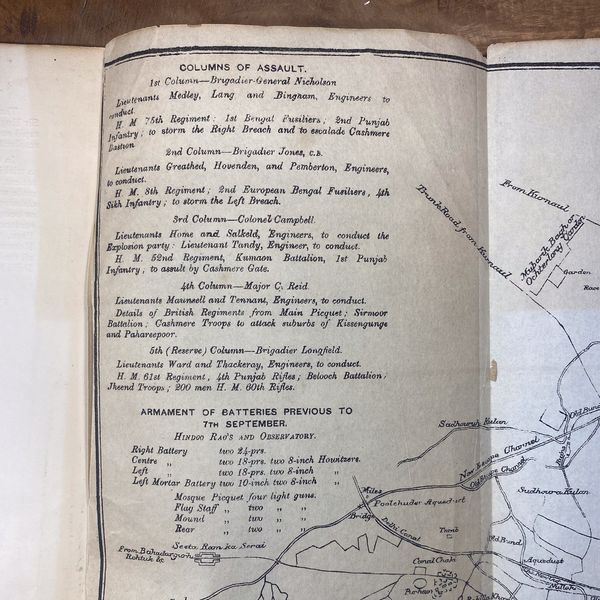 COLUMNS OF ASSAULT.
1st Column—Brigadier-General Nicholson
Lieutenants Medley, Lang and Bingham, Engineers to
conduct.
H. M 75th Regiment: 1st Bengal Fusiliers; 2nd Punjab
Infantry; to storm the Right Breach and to escalade Cashmere
Bastion
2nd Column—Brigadier Jones, C.B.
Lieutenants Greathed, Hovenden, and Pemberton, Engineers,
to conduct.
H. M. 8th Regiment; 2nd European Bengal Fusiliers, 4th
Sikh Infantry; to storm the Left Breach.
3rd Column—Colonel Campbell.
Lieutenants Home and Salkeld, Engineers, to conduct the
Explosion party: Lieutenant Tandy, Engineer, to conduct.
H. M. 52nd Regiment, Kumaon Battalion, 1st Punjab
Infantry; to assult by Cashmere Gate.
4th Column—Major C. Reid
Lieutenants Maunsell and Tennant, Engineers, to conduct.
Details of British Regiments from Main Picquet; Sirmoor
Battalion; Cashmere Troops to attack suburbs of Kissengunge
and Pahareepoor.
5th (Reserve) Column—Brigadier Longfield.
Lieutenants Ward and Thackeray, Engineers, to conduct.
H. M. 61st Regiment, 4th Punjab Rifles; Belooch Battalion;
Jheend Troops; 200 men H. M. 60th Rifles.
ARMAMENT OF BATTERIES PREVIOUS TO
7TH SEPTEMBER.
HINDOO RAO'S AND OBSERVATORY.
Right Battery two 24-prs.
Centre „ two 18-prs. two 8-inch Howitzers.
Left „ two 18-prs. two 8-inch „
Left Mortar Battery two 10-inch two 8-inch „
Mosque Picquet four light guns.
Flag Staff „ two „ „
Mound „ two „ „
Rear „ two „ „
From Kurnaul
Trunk Road from Kurnaul
Mubarik Bagh or
Ochterlony Garden
Garden
Race
Sadhourah Kulan
Old Bund
New Escape Channel
Old Escape Channel
Sudhoura Kulan
Miles
Poolchudur Aqueduct
Bridge
Delhi Canal
Tomb
Old Bund
Seeta Ram ka Serai
From Bahadargarh
Rohtuk &c
Canal Choki
Aquaduct